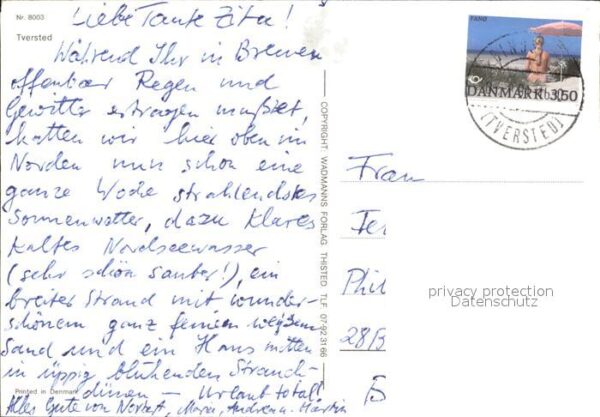 Nr. 8003
Tversted
Liebe Tante Zita!
Während Ihr in Bremen
offenbar Regen und
Gewitter ertragen mußtet,
hatten wir hier oben im
Norden nun schon eine
ganze Woche strahlendstes
Sonnenwetter, dazu klares
kaltes Nordseewasser
(sehr schön sauber!), ein
breiter Strand mit wunder-
schönem ganz feinem weißem
Sand und ein Haus mitten
in üppig blühenden Strand-
dünen – Urlaub total!
Printed in Denmark
Alles Gute von Norbert, Andrea u. Martin
COPYRIGHT: WADMANNS FORLAG THISTED TLF 07-92 31 66
FANØ
DANMARK 3.50
(TVERSTED)
Frau
Phil
28
privacy protection
Datenschutz